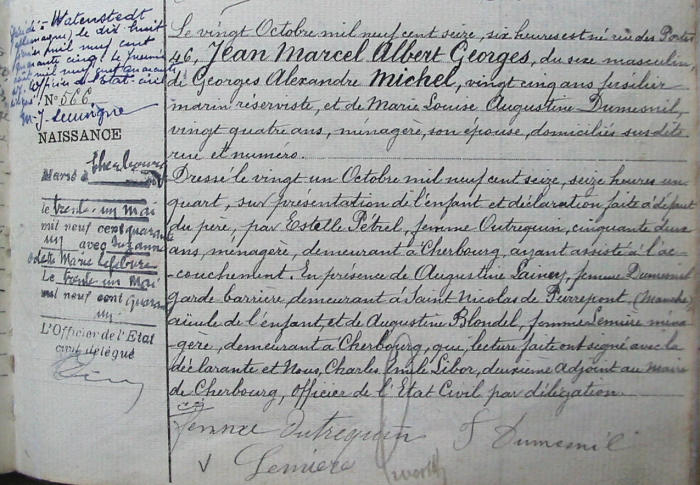 Décédé à Watenstedt
(Allemagne) le dix huit
mil neuf cent
quarante cinq. Le premier
mil neuf cent quarante
officier de l'état civil
N° 566
NAISSANCE
Marié à Cherbourg
le trente-un Mai
mil neuf cent quarante
un avec Suzanne
Odette Marie Lefebvre
Le trente-un Mai
mil neuf cent quarante
un
L'Officier de l'Etat
civil délégué
Le vingt Octobre mil neuf cent seize, six heures est né rue des Portes
46, Jean Marcel Albert Georges, du sexe masculin,
de Georges Alexandre Michel, vingt cinq ans, fusilier
marin réserviste, et de Marie Louise Augustine Dumesnil,
vingt quatre ans, ménagère, son épouse, domiciliés susdits
rue et numéro.
Dressé le vingt un Octobre mil neuf cent seize, seize heures un
quart, sur présentation de l'enfant et déclaration faite à défaut
du père, par Estelle Pétrel, femme Outrequin, cinquante deux
ans, ménagère, demeurant à Cherbourg, ayant assisté à l'ac-
couchement. En présence de Augustine Lainey, femme Dumesnil
garde barrière, demeurant à Saint Nicolas de Pierrepont, (Manche)
aïeule de l'enfant, et de Augustine Blondel, femme Lemière ména-
gère, demeurant à Cherbourg, qui, lecture faite ont signé avec la
déclarante et Nous, Charles Emile Libor, deuxième adjoint au maire
de Cherbourg, Officier de l'Etat Civil par délégation.
femme Outrequin F Dumesnil
Lemiere